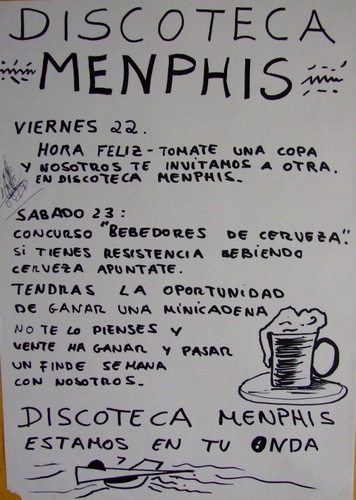 DISCOTECA
MENPHIS
VIERNES 22.
HORA FELIZ - TOMATE UNA COPA
Y NOSOTROS TE INVITAMOS A OTRA.
EN DISCOTECA MENPHIS.
SABADO 23:
CONCURSO "BEBEDORES DE CERVEZA".
SI TIENES RESISTENCIA BEBIENDO
CERVEZA APUNTATE.
TENDRAS LA OPORTUNIDAD
DE GANAR UNA MINICADENA
NO TE LO PIENSES Y
VENTE HA GANAR Y PASAR
UN FINDE SEMANA
CON NOSOTROS.
DISCOTECA MENPHIS
ESTAMOS EN TU ONDA